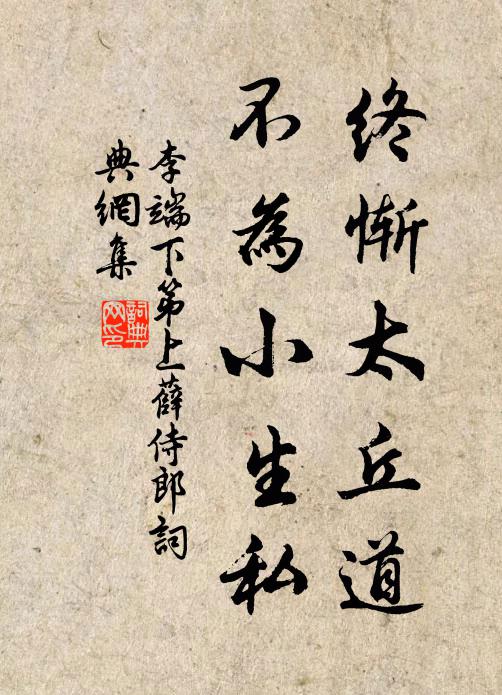 終慚太丘道
不為小生私
李端下第上薛侍郎詞
典網集
詞典
网印